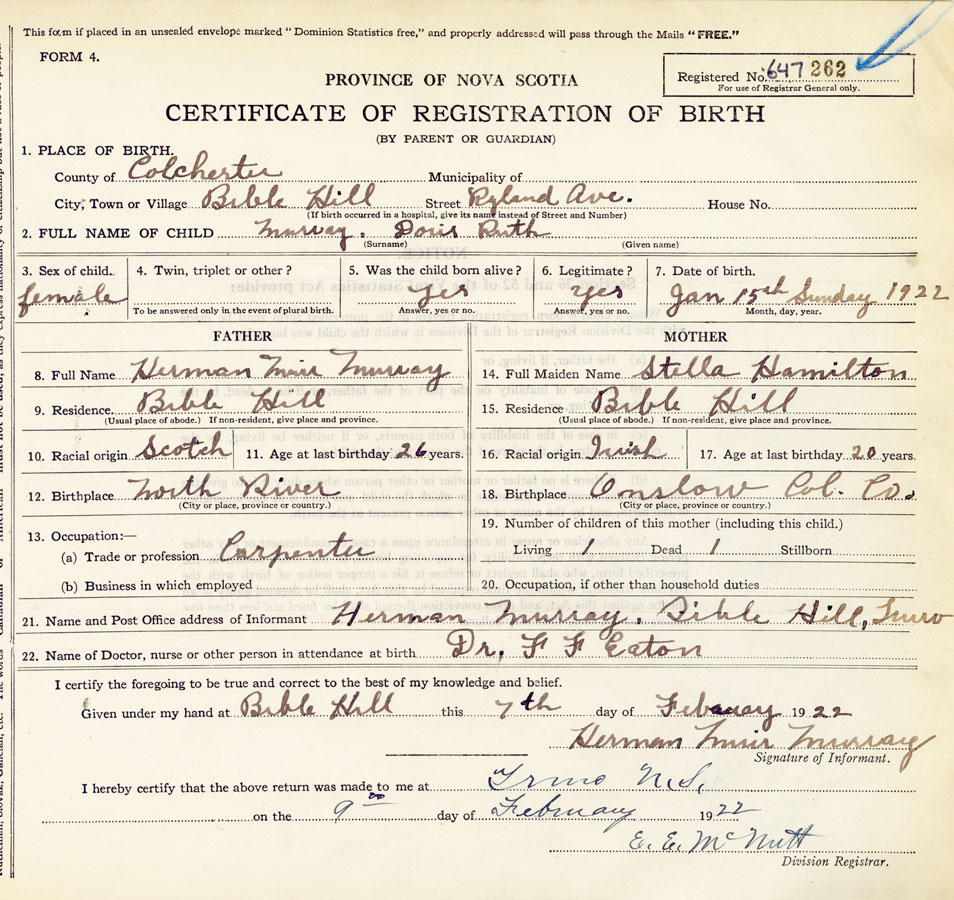 This form if placed in an unsealed envelope marked "Dominion Statistics free," and properly addressed will pass through the Mails "FREE."
FORM 4.
Registered No. 647 262
For use of Registrar General only.
PROVINCE OF NOVA SCOTIA
CERTIFICATE OF REGISTRATION OF BIRTH
(BY PARENT OR GUARDIAN)
1. PLACE OF BIRTH.
County of Colchester Municipality of
City, Town or Village Bible Hill Street Ryland Ave. House No.
(If birth occurred in a hospital, give its name instead of Street and Number)
2. FULL NAME OF CHILD Murray. Doris Ruth
(Surname) (Given name)
3. Sex of child. 4. Twin, triplet or other? 5. Was the child born alive? 6. Legitimate? 7. Date of birth.
female Yes Yes Jan 15th Sunday 1922
To be answered only in the event of plural birth. Answer, yes or no. Answer, yes or no. Month, day, year.
FATHER MOTHER
8. Full Name Herman Muir Murray 14. Full Maiden Name Stella Hamilton
9. Residence. Bible Hill 15. Residence Bible Hill
(Usual place of abode.) If non-resident, give place and province. (Usual place of abode.) If non-resident, give place and province.
10. Racial origin Scotch 11. Age at last birthday 26 years. 16. Racial origin Irish 17. Age at last birthday 20 years.
12. Birthplace North River 18. Birthplace Onslow Col. Co.
(City or place, province or country.) (City or place, province or country.)
13. Occupation:— 19. Number of children of this mother (including this child.)
(a) Trade or profession Carpenter Living 1 Dead 1 Stillborn
(b) Business in which employed 20. Occupation, if other than household duties
21. Name and Post Office address of Informant Herman Murray. Bible Hill, Truro
22. Name of Doctor, nurse or other person in attendance at birth Dr. F F Eaton
I certify the foregoing to be true and correct to the best of my knowledge and belief.
Given under my hand at Bible Hill this 7th day of February 1922
Herman Muir Murray
Signature of Informant.
I hereby certify that the above return was made to me at Truro N.S.
on the 9th day of February 1922
E. E. McNutt
Division Registrar.